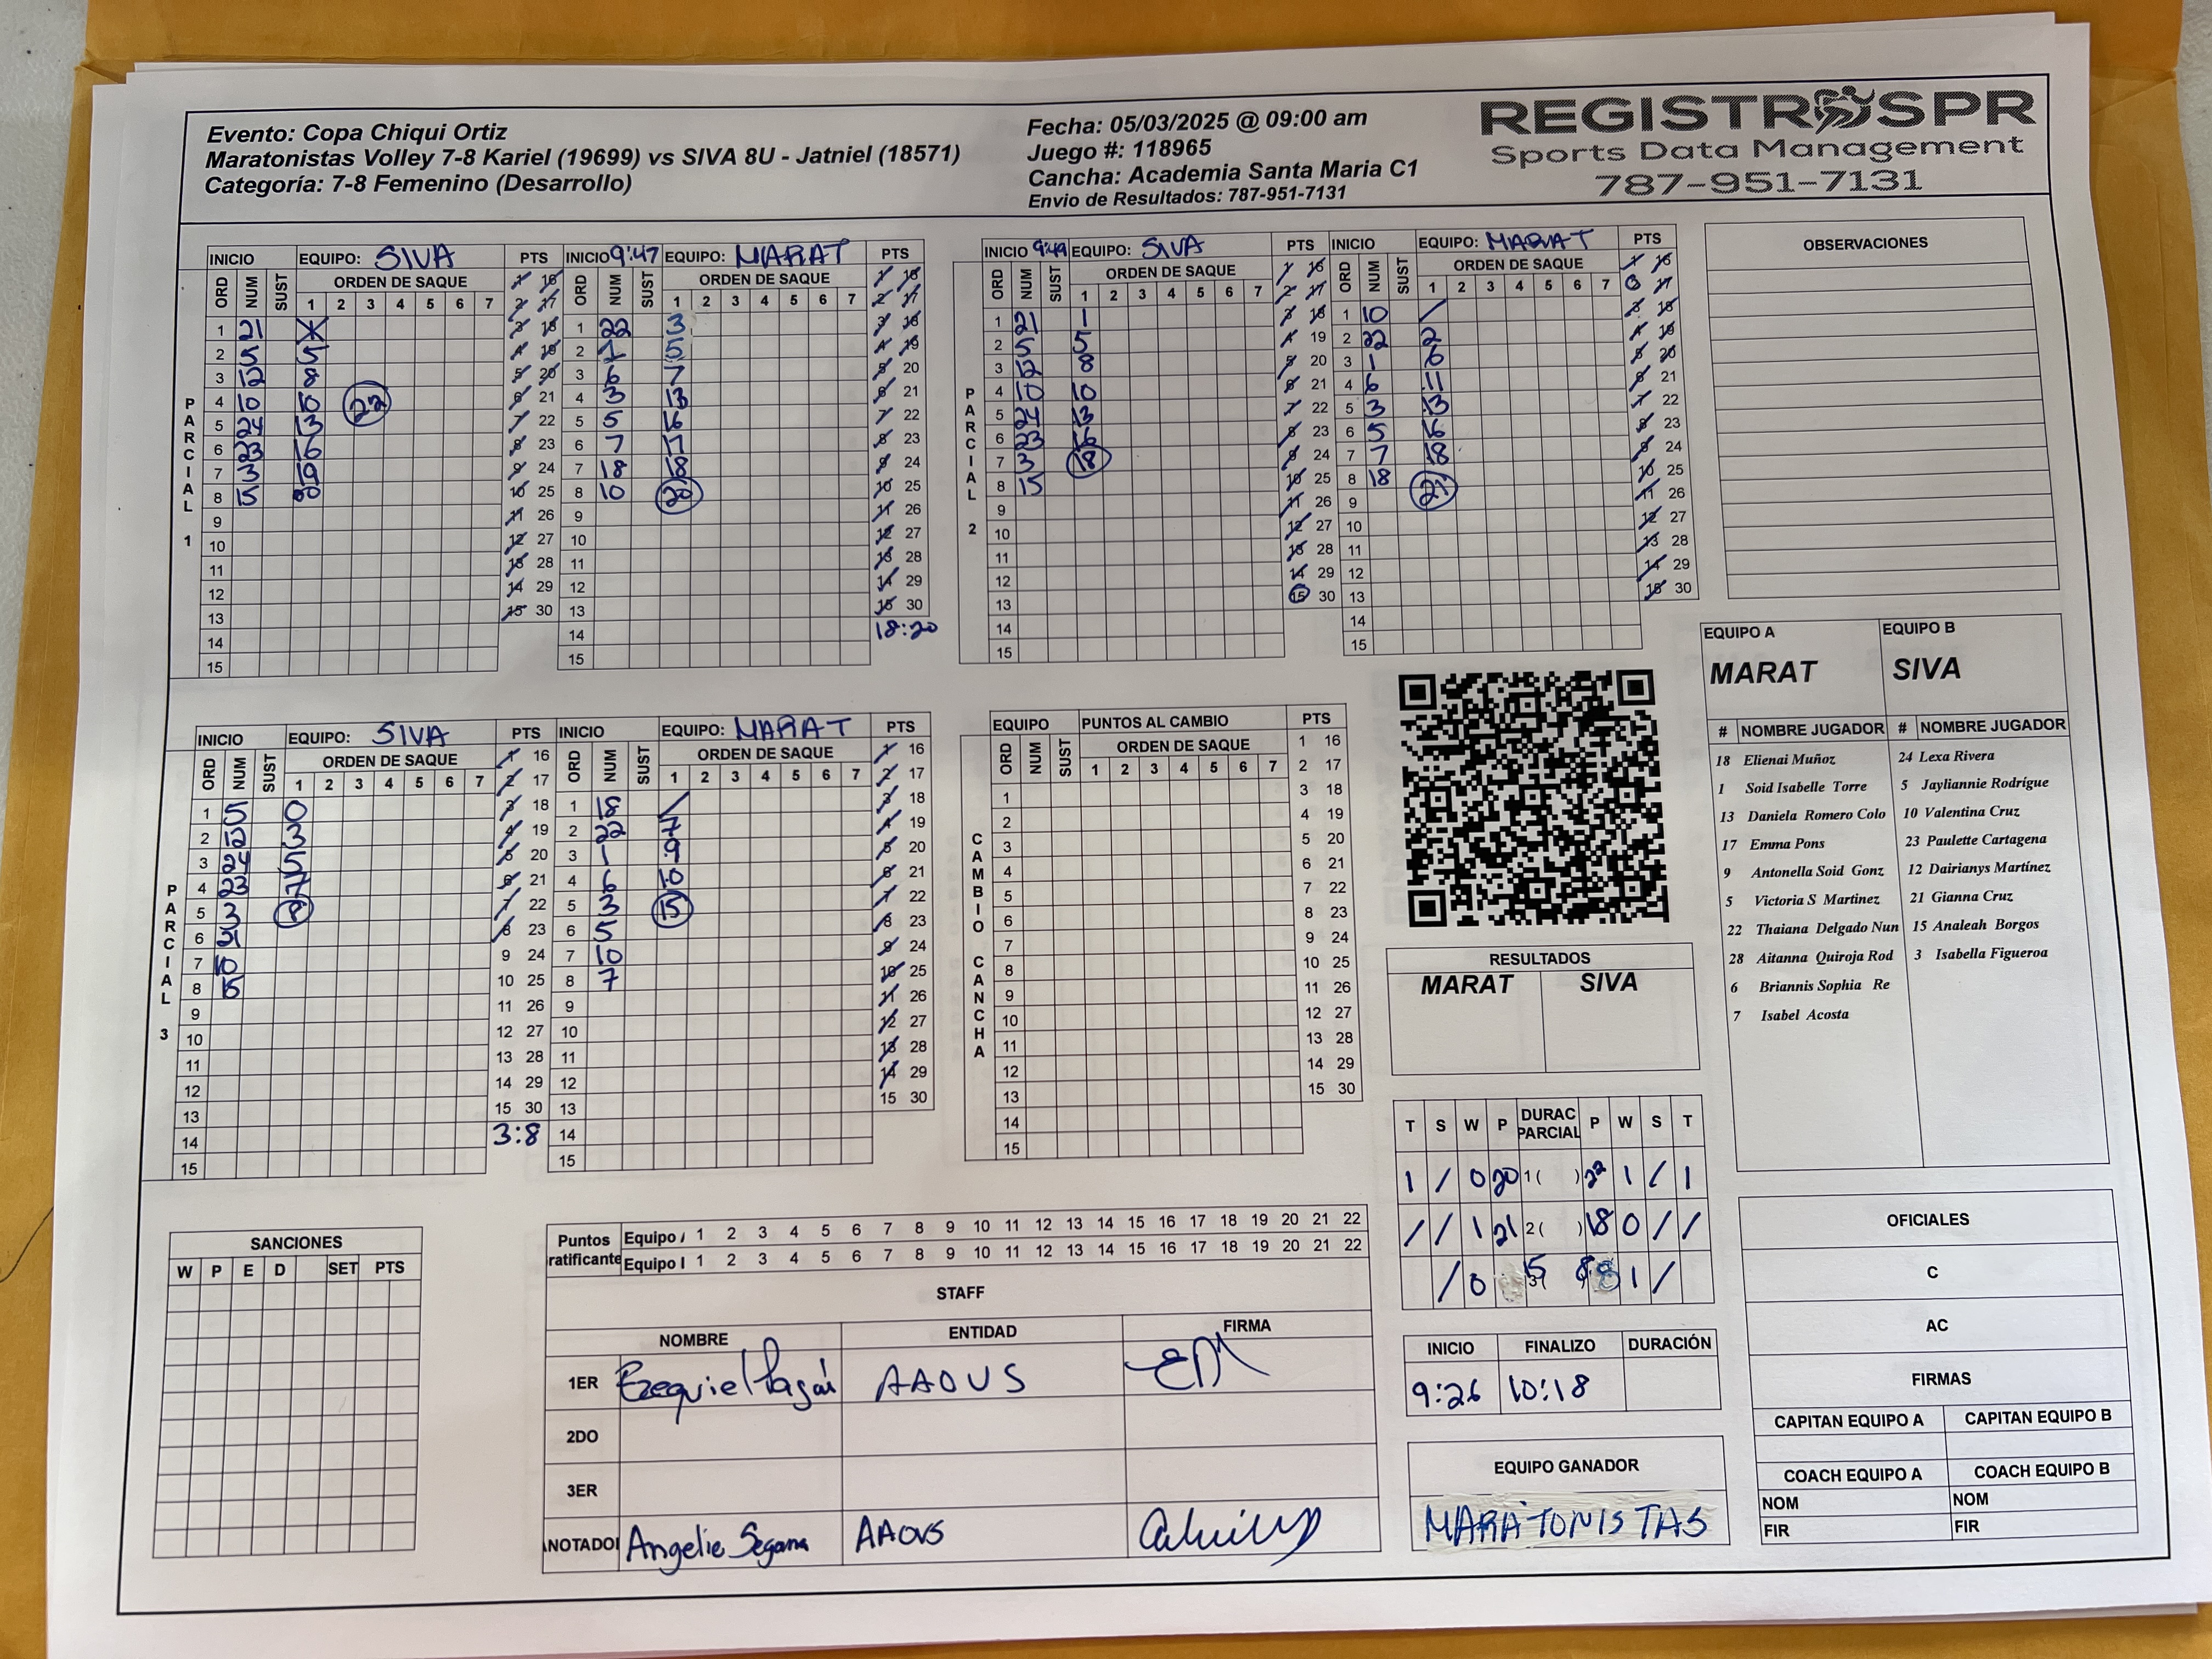 Evento: Copa Chiqui Ortiz
Maratonistas Volley 7-8 Kariel (19699) vs SIVA 8U - Jatniel (18571)
Categoría: 7-8 Femenino (Desarrollo)
Fecha: 05/03/2025 @ 09:00 am
Juego #: 118965
Cancha: Academia Santa Maria C1
Envio de Resultados: 787-951-7131
REGISTROSPR
Sports Data Management
787-951-7131
PARCIAL 1
INICIO EQUIPO: SIVA PTS
ORD NUM SUST ORDEN DE SAQUE
1 2 3 4 5 6 7
1 21
2 5 5
3 12 8
4 10 10 22
5 24 13
6 23 16
7 3 19
8 15 20
9
10
11
12
13
14
15
1 16
2 17
3 18
4 19
5 20
6 21
7 22
8 23
9 24
10 25
11 26
12 27
13 28
14 29
15 30
INICIO 9:47 EQUIPO: MARAT PTS
ORD NUM SUST ORDEN DE SAQUE
1 2 3 4 5 6 7
1 22 3
2 1 5
3 6 7
4 3 13
5 5 16
6 7 17
7 18 18
8 10 20
9
10
11
12
13
14
15
1 16
2 17
3 18
4 19
5 20
6 21
7 22
8 23
9 24
10 25
11 26
12 27
13 28
14 29
15 30
18:20
PARCIAL 2
INICIO 9:49 EQUIPO: SIVA PTS
ORD NUM SUST ORDEN DE SAQUE
1 2 3 4 5 6 7
1 21 1
2 5 5
3 12 8
4 10 10
5 24 13
6 23 16
7 3 18
8 15
9
10
11
12
13
14
15
1 16
2 17
3 18
4 19
5 20
6 21
7 22
8 23
9 24
10 25
11 26
12 27
13 28
14 29
15 30
INICIO EQUIPO: MARAT PTS
ORD NUM SUST ORDEN DE SAQUE
1 2 3 4 5 6 7
1 10 /
2 22 2
3 1 6
4 6 11
5 3 13
6 5 16
7 7 18
8 18 21
9
10
11
12
13
14
15
1 16
17
3 18
4 19
5 20
6 21
7 22
8 23
9 24
10 25
11 26
12 27
13 28
14 29
15 30
OBSERVACIONES
PARCIAL 3
INICIO EQUIPO: SIVA PTS
ORD NUM SUST ORDEN DE SAQUE
1 2 3 4 5 6 7
1 5 0
2 12 3
3 24 5
4 23 7
5 3 8
6 21
7 10
8 15
9
10
11
12
13
14
15
1 16
2 17
3 18
4 19
5 20
6 21
7 22
8 23
9 24
10 25
11 26
12 27
13 28
14 29
15 30
3:8
INICIO EQUIPO: MARAT PTS
ORD NUM SUST ORDEN DE SAQUE
1 2 3 4 5 6 7
1 18 /
2 22 7
3 1 9
4 6 10
5 3 15
6 5
7 10
8 7
9
10
11
12
13
14
15
1 16
2 17
3 18
4 19
5 20
6 21
7 22
8 23
9 24
10 25
11 26
12 27
13 28
14 29
15 30
CAMBIO CANCHA
EQUIPO PUNTOS AL CAMBIO PTS
ORD NUM SUST ORDEN DE SAQUE
1 2 3 4 5 6 7
1
2
3
4
5
6
7
8
9
10
11
12
13
14
15
1 16
2 17
3 18
4 19
5 20
6 21
7 22
8 23
9 24
10 25
11 26
12 27
13 28
14 29
15 30
EQUIPO A EQUIPO B
MARAT SIVA
# NOMBRE JUGADOR # NOMBRE JUGADOR
18 Elienai Muñoz 24 Lexa Rivera
1 Soid Isabelle Torre 5 Jayliannie Rodrígue
13 Daniela Romero Colo 10 Valentina Cruz
17 Emma Pons 23 Paulette Cartagena
9 Antonella Soid Gonz 12 Dairianys Martínez
5 Victoria S Martinez 21 Gianna Cruz
22 Thaiana Delgado Nun 15 Analeah Borgos
28 Aitanna Quiroja Rod 3 Isabella Figueroa
6 Briannis Sophia Re
7 Isabel Acosta
RESULTADOS
MARAT SIVA
T S W P DURAC PARCIAL P W S T
1 / 0 20 1( ) 22 1 / 1
/ / 1 21 2( ) 18 0 / /
/ 0 15 3( 8 1 /
INICIO FINALIZO DURACIÓN
9:26 10:18
EQUIPO GANADOR
MARATONISTAS
SANCIONES
W P E D SET PTS
Puntos
ratificante
Equipo 1 2 3 4 5 6 7 8 9 10 11 12 13 14 15 16 17 18 19 20 21 22
Equipo 1 2 3 4 5 6 7 8 9 10 11 12 13 14 15 16 17 18 19 20 21 22
STAFF
NOMBRE ENTIDAD FIRMA
1ER Ezequiel Pagán AAOVS
2DO
3ER
ANOTADO Angelie Segarra AAOVS
OFICIALES
C
AC
FIRMAS
CAPITAN EQUIPO A CAPITAN EQUIPO B
COACH EQUIPO A COACH EQUIPO B
NOM NOM
FIR FIR